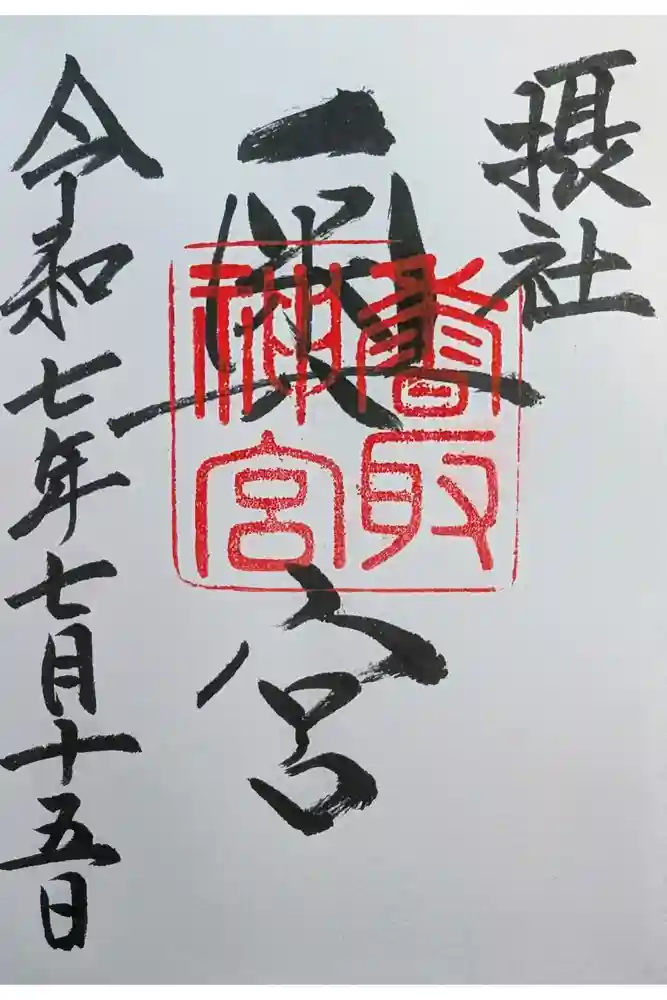 摂社
奥宮
香取
神宮
令和七年七月十五日